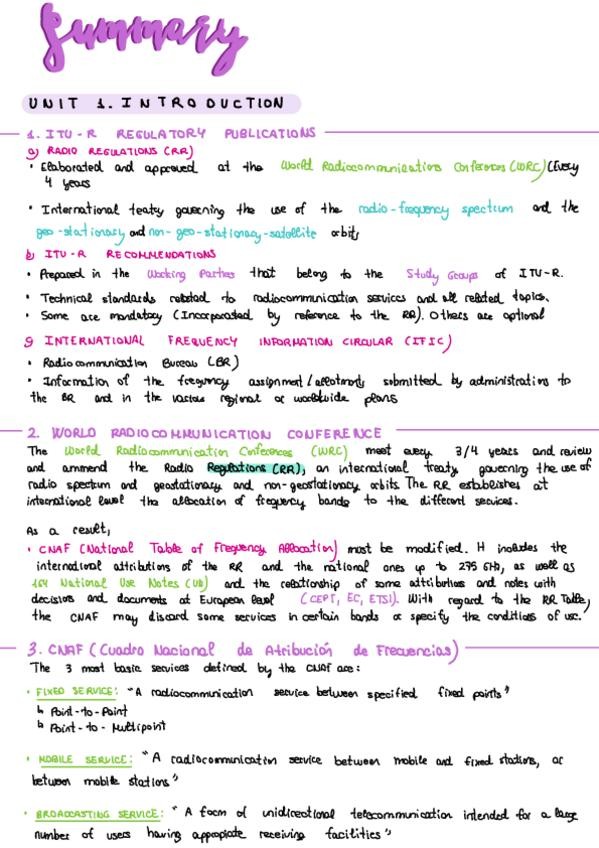 Summary
UNIT 1. INTRODUCTION
1. ITU-R REGULATORY PUBLICATIONS
a) RADIO REGULATIONS (RR)
• Elaborated and approved at the World Radiocommunications Conferences (WRC) (Every
4 years
• International treaty governing the use of the radio-frequency spectrum and the
geo-stationary and non-geo-stationary-satellite orbits
b) ITU-R RECOMMENDATIONS
• Prepared in the Working Parties that belong to the Study Groups of ITU-R.
• Technical standards related to radiocommunication services and all related topics.
• Some are mandatory (Incorporated by reference to the RR). Others are optional
c) INTERNATIONAL FREQUENCY INFORMATION CIRCULAR (IFIC)
• Radiocommunication Bureau (BR)
• Information of the frequency assignment/allotments submitted by administrations to
the BR and in the various regional or worldwide plans
2. WORLD RADIOCOMMUNICATION CONFERENCE
The World Radiocommunication Conferences (WRC) meet every 3/4 years and review
and ammend the Radio Regulations (RR), an international treaty governing the use of
radio spectrum and geostationary and non-geostationary orbits. The RR establishes at
international level the allocation of frequency bands to the different services.
As a result,
• CNAF (National Table of Frequency Allocation) must be modified. It includes the
international attributions of the RR and the national ones up to 275 GHz, as well as
164 National Use Notes (UN) and the relationship of some attributions and notes with
decisions and documents at European level (CEPT, EC, ETSI). With regard to the RR Table,
the CNAF may discard some services in certain bands or specify the conditions of use.
3. CNAF (Cuadro Nacional de Atribución de Frecuencias)
The 3 most basic services defined by the CNAF are:
• FIXED SERVICE: "A radiocommunication service between specified fixed points"
↳ Point-to-Point
↳ Point-to-Multipoint
• MOBILE SERVICE: "A radiocommunication service between mobile and fixed stations, or
between mobile stations"
• BROADCASTING SERVICE: "A form of unidirectional telecommunication intended for a large
number of users having appropiate receiving facilities"